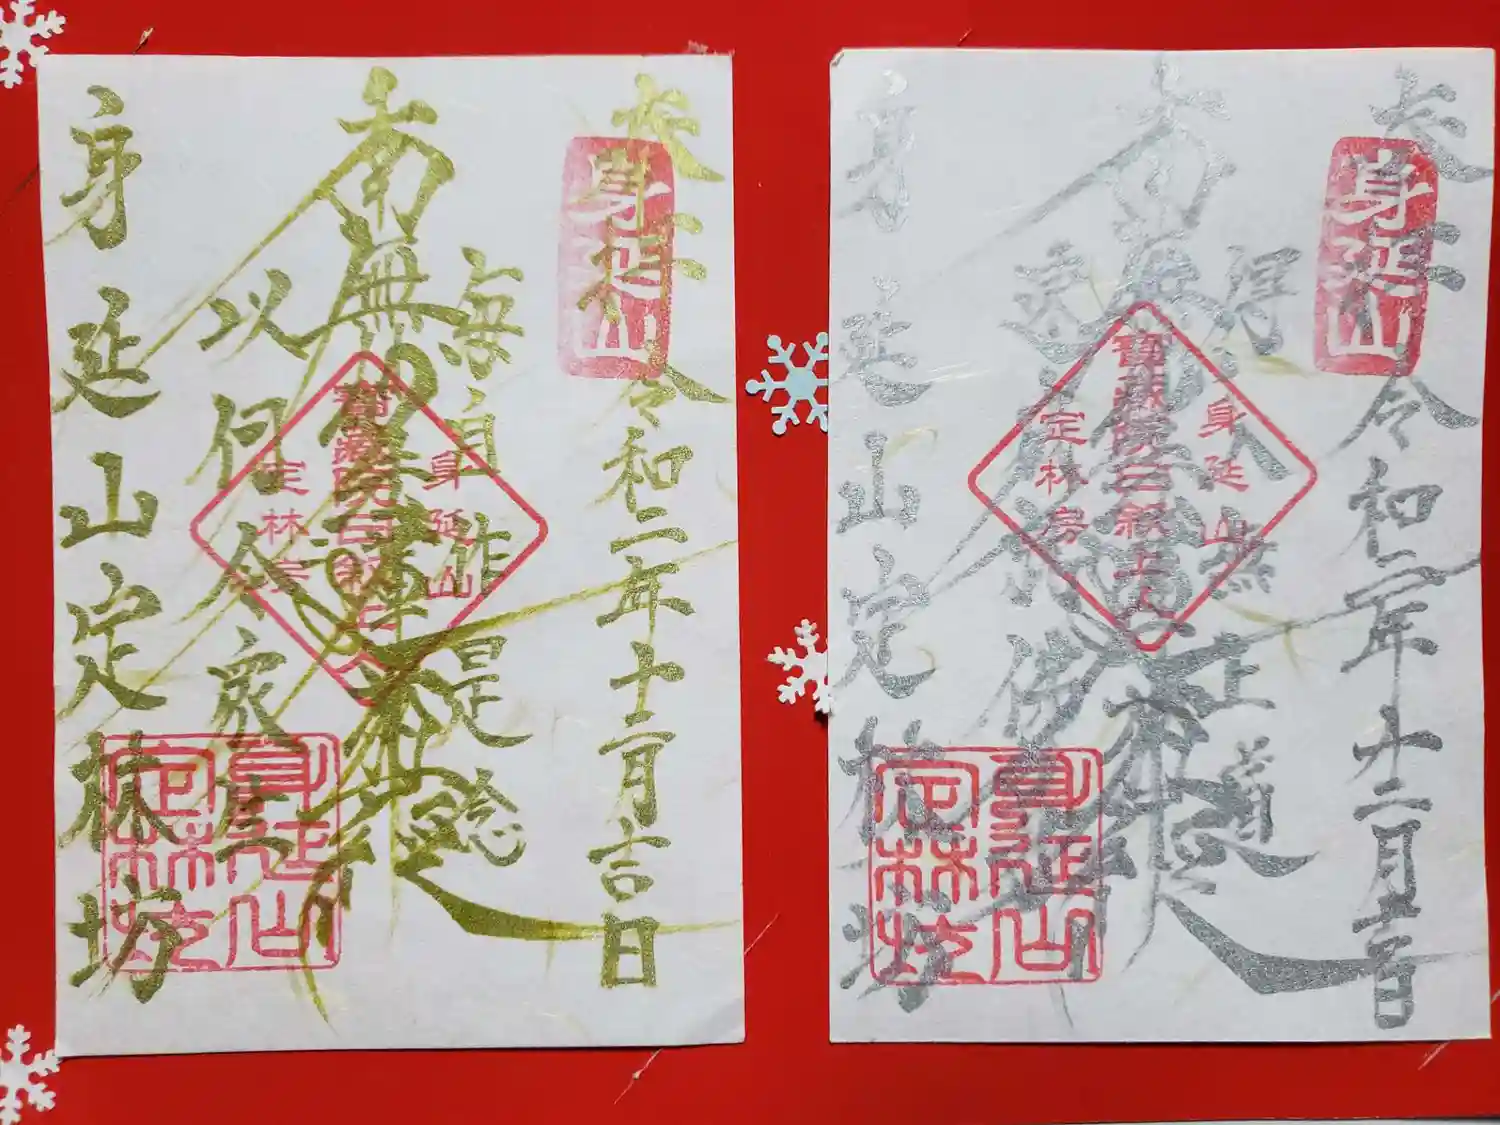 奉拝
令和二年十二月吉日
身延山
毎自作是念
南無妙法蓮華経
以何令衆生
身延山
寶蔵院日叙上人
定林房
身延山定林坊
身延山
定林坊
奉拝
令和二年十二月吉日
身延山
得入無上道
南無妙法蓮華経
速成就佛身
身延山
寶蔵院日叙上人
定林房
身延山定林坊
身延山
定林坊